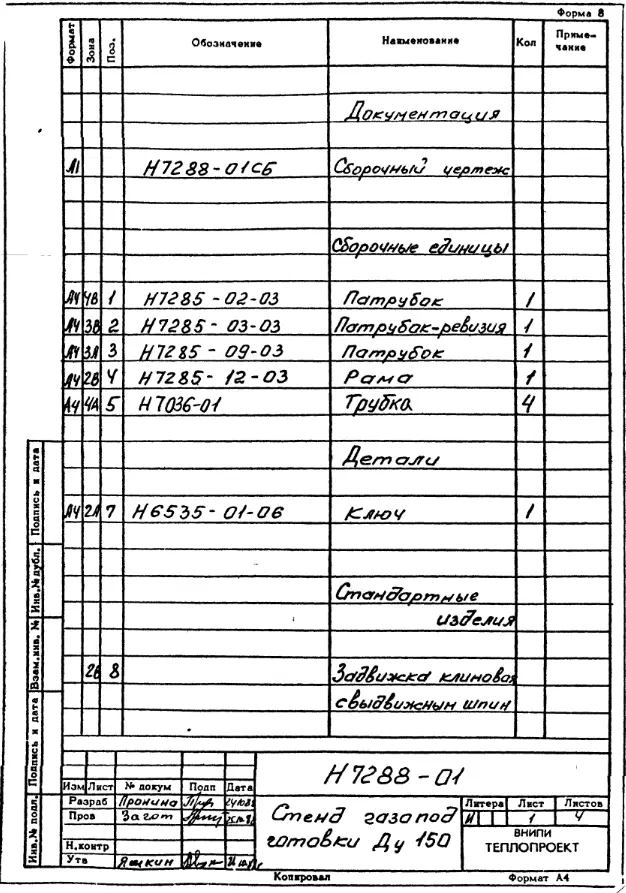 Форма 8
Формат Зона Поз. Обозначение Наименование Кол Приме-
чание
Документация
А1 Н7288-01СБ Сборочный чертеж
Сборочные единицы
А4 4В 1 Н7285-02-03 Патрубок 1
А4 3В 2 Н7285-03-03 Патрубок-ревизия 1
А4 3А 3 Н7285-09-03 Патрубок 1
А4 2В 4 Н7285-12-03 Рама 1
А4 4А 5 Н7036-01 Трубка 4
Детали
А4 2А 7 Н6535-01-06 Ключ 1
Стандартные
изделия
2В 8 Задвижка клиновая
с выдвижным шпин
Инв.№ подл. Подпись и дата Взам.инв. № Инв.№ дубл. Подпись и дата
Н7288-01
Изм Лист № докум Подп Дата
Разраб Пронина
Пров Загот
Н.контр
Утв Яшкин
Стенд газапод
готовки Ду 150
Литера Лист Листов
И 1 4
ВНИПИ
ТЕПЛОПРОЕКТ
Копировал Формат А4